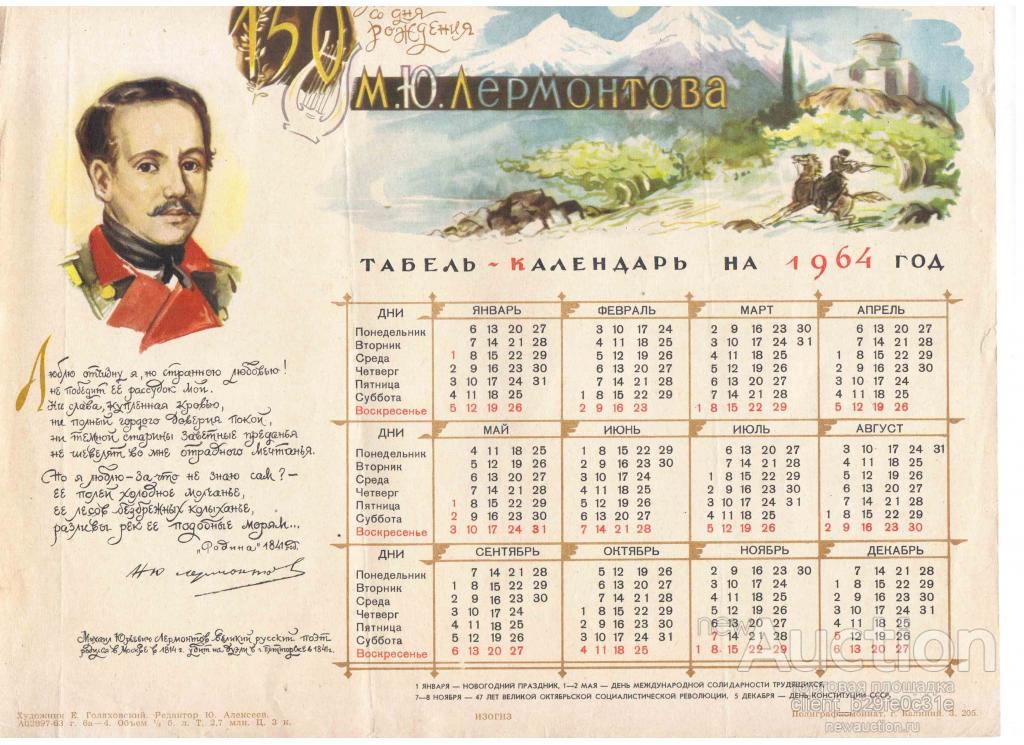 150
со дня
рождения
М.Ю. Лермонтова
ТАБЕЛЬ-КАЛЕНДАРЬ НА 1964 ГОД
ДНИ ЯНВАРЬ ФЕВРАЛЬ МАРТ АПРЕЛЬ
Понедельник 6 13 20 27 3 10 17 24 2 9 16 23 30 6 13 20 27
Вторник 7 14 21 28 4 11 18 25 3 10 17 24 31 7 14 21 28
Среда 1 8 15 22 29 5 12 19 26 4 11 18 25 1 8 15 22 29
Четверг 2 9 16 23 30 6 13 20 27 5 12 19 26 2 9 16 23 30
Пятница 3 10 17 24 31 7 14 21 28 6 13 20 27 3 10 17 24
Суббота 4 11 18 25 1 8 15 22 29 7 14 21 28 4 11 18 25
Воскресенье 5 12 19 26 2 9 16 23 1 8 15 22 29 5 12 19 26
ДНИ МАЙ ИЮНЬ ИЮЛЬ АВГУСТ
Понедельник 4 11 18 25 1 8 15 22 29 6 13 20 27 3 10 17 24 31
Вторник 5 12 19 26 2 9 16 23 30 7 14 21 28 4 11 18 25
Среда 6 13 20 27 3 10 17 24 1 8 15 22 29 5 12 19 26
Четверг 7 14 21 28 4 11 18 25 2 9 16 23 30 6 13 20 27
Пятница 1 8 15 22 29 5 12 19 26 3 10 17 24 31 7 14 21 28
Суббота 2 9 16 23 30 6 13 20 27 4 11 18 25 1 8 15 22 29
Воскресенье 3 10 17 24 31 7 14 21 28 5 12 19 26 2 9 16 23 30
ДНИ СЕНТЯБРЬ ОКТЯБРЬ НОЯБРЬ ДЕКАБРЬ
Понедельник 7 14 21 28 5 12 19 26 2 9 16 23 30 7 14 21 28
Вторник 1 8 15 22 29 6 13 20 27 3 10 17 24 1 8 15 22 29
Среда 2 9 16 23 30 7 14 21 28 4 11 18 25 2 9 16 23 30
Четверг 3 10 17 24 1 8 15 22 29 5 12 19 26 3 10 17 24 31
Пятница 4 11 18 25 2 9 16 23 30 6 13 20 27 4 11 18 25
Суббота 5 12 19 26 3 10 17 24 31 7 14 21 28 5 12 19 26
Воскресенье 6 13 20 27 4 11 18 25 1 8 15 22 29 6 13 20 27
Люблю отчизну я, но странною любовью!
Не победит её рассудок мой.
Ни слава, купленная кровью,
ни полный гордого доверия покой,
ни тёмной старины заветные преданья
не шевелят во мне отрадного мечтанья.
Но я люблю-за что не знаю сам?-
её полей холодное молчанье,
её лесов безбрежных колыханье,
разливы рек её подобные морям...
„Родина" 1841г.
М Ю Лермонтов
Михаил Юрьевич Лермонтов-великий русский поэт
родился в Москве в 1814г. убит на дуэли в г. Пятигорске в 1841г.
1 ЯНВАРЯ — НОВОГОДНИЙ ПРАЗДНИК, 1—2 МАЯ — ДЕНЬ МЕЖДУНАРОДНОЙ СОЛИДАРНОСТИ ТРУДЯЩИХСЯ,
7—8 НОЯБРЯ — 47 ЛЕТ ВЕЛИКОЙ ОКТЯБРЬСКОЙ СОЦИАЛИСТИЧЕСКОЙ РЕВОЛЮЦИИ, 5 ДЕКАБРЯ — ДЕНЬ КОНСТИТУЦИИ СССР.
Художник Е. Голяховский. Редактор Ю. Алексеев.
А02897-63 г. 6а—4. Объем ½ б. л. Т. 2,7 млн. Ц. 3 к.
ИЗОГИЗ
Полиграфкомбинат, г. Калинин. З. 205.
newAuction
торговая площадка
client_b29fe0c31e
newauction.ru